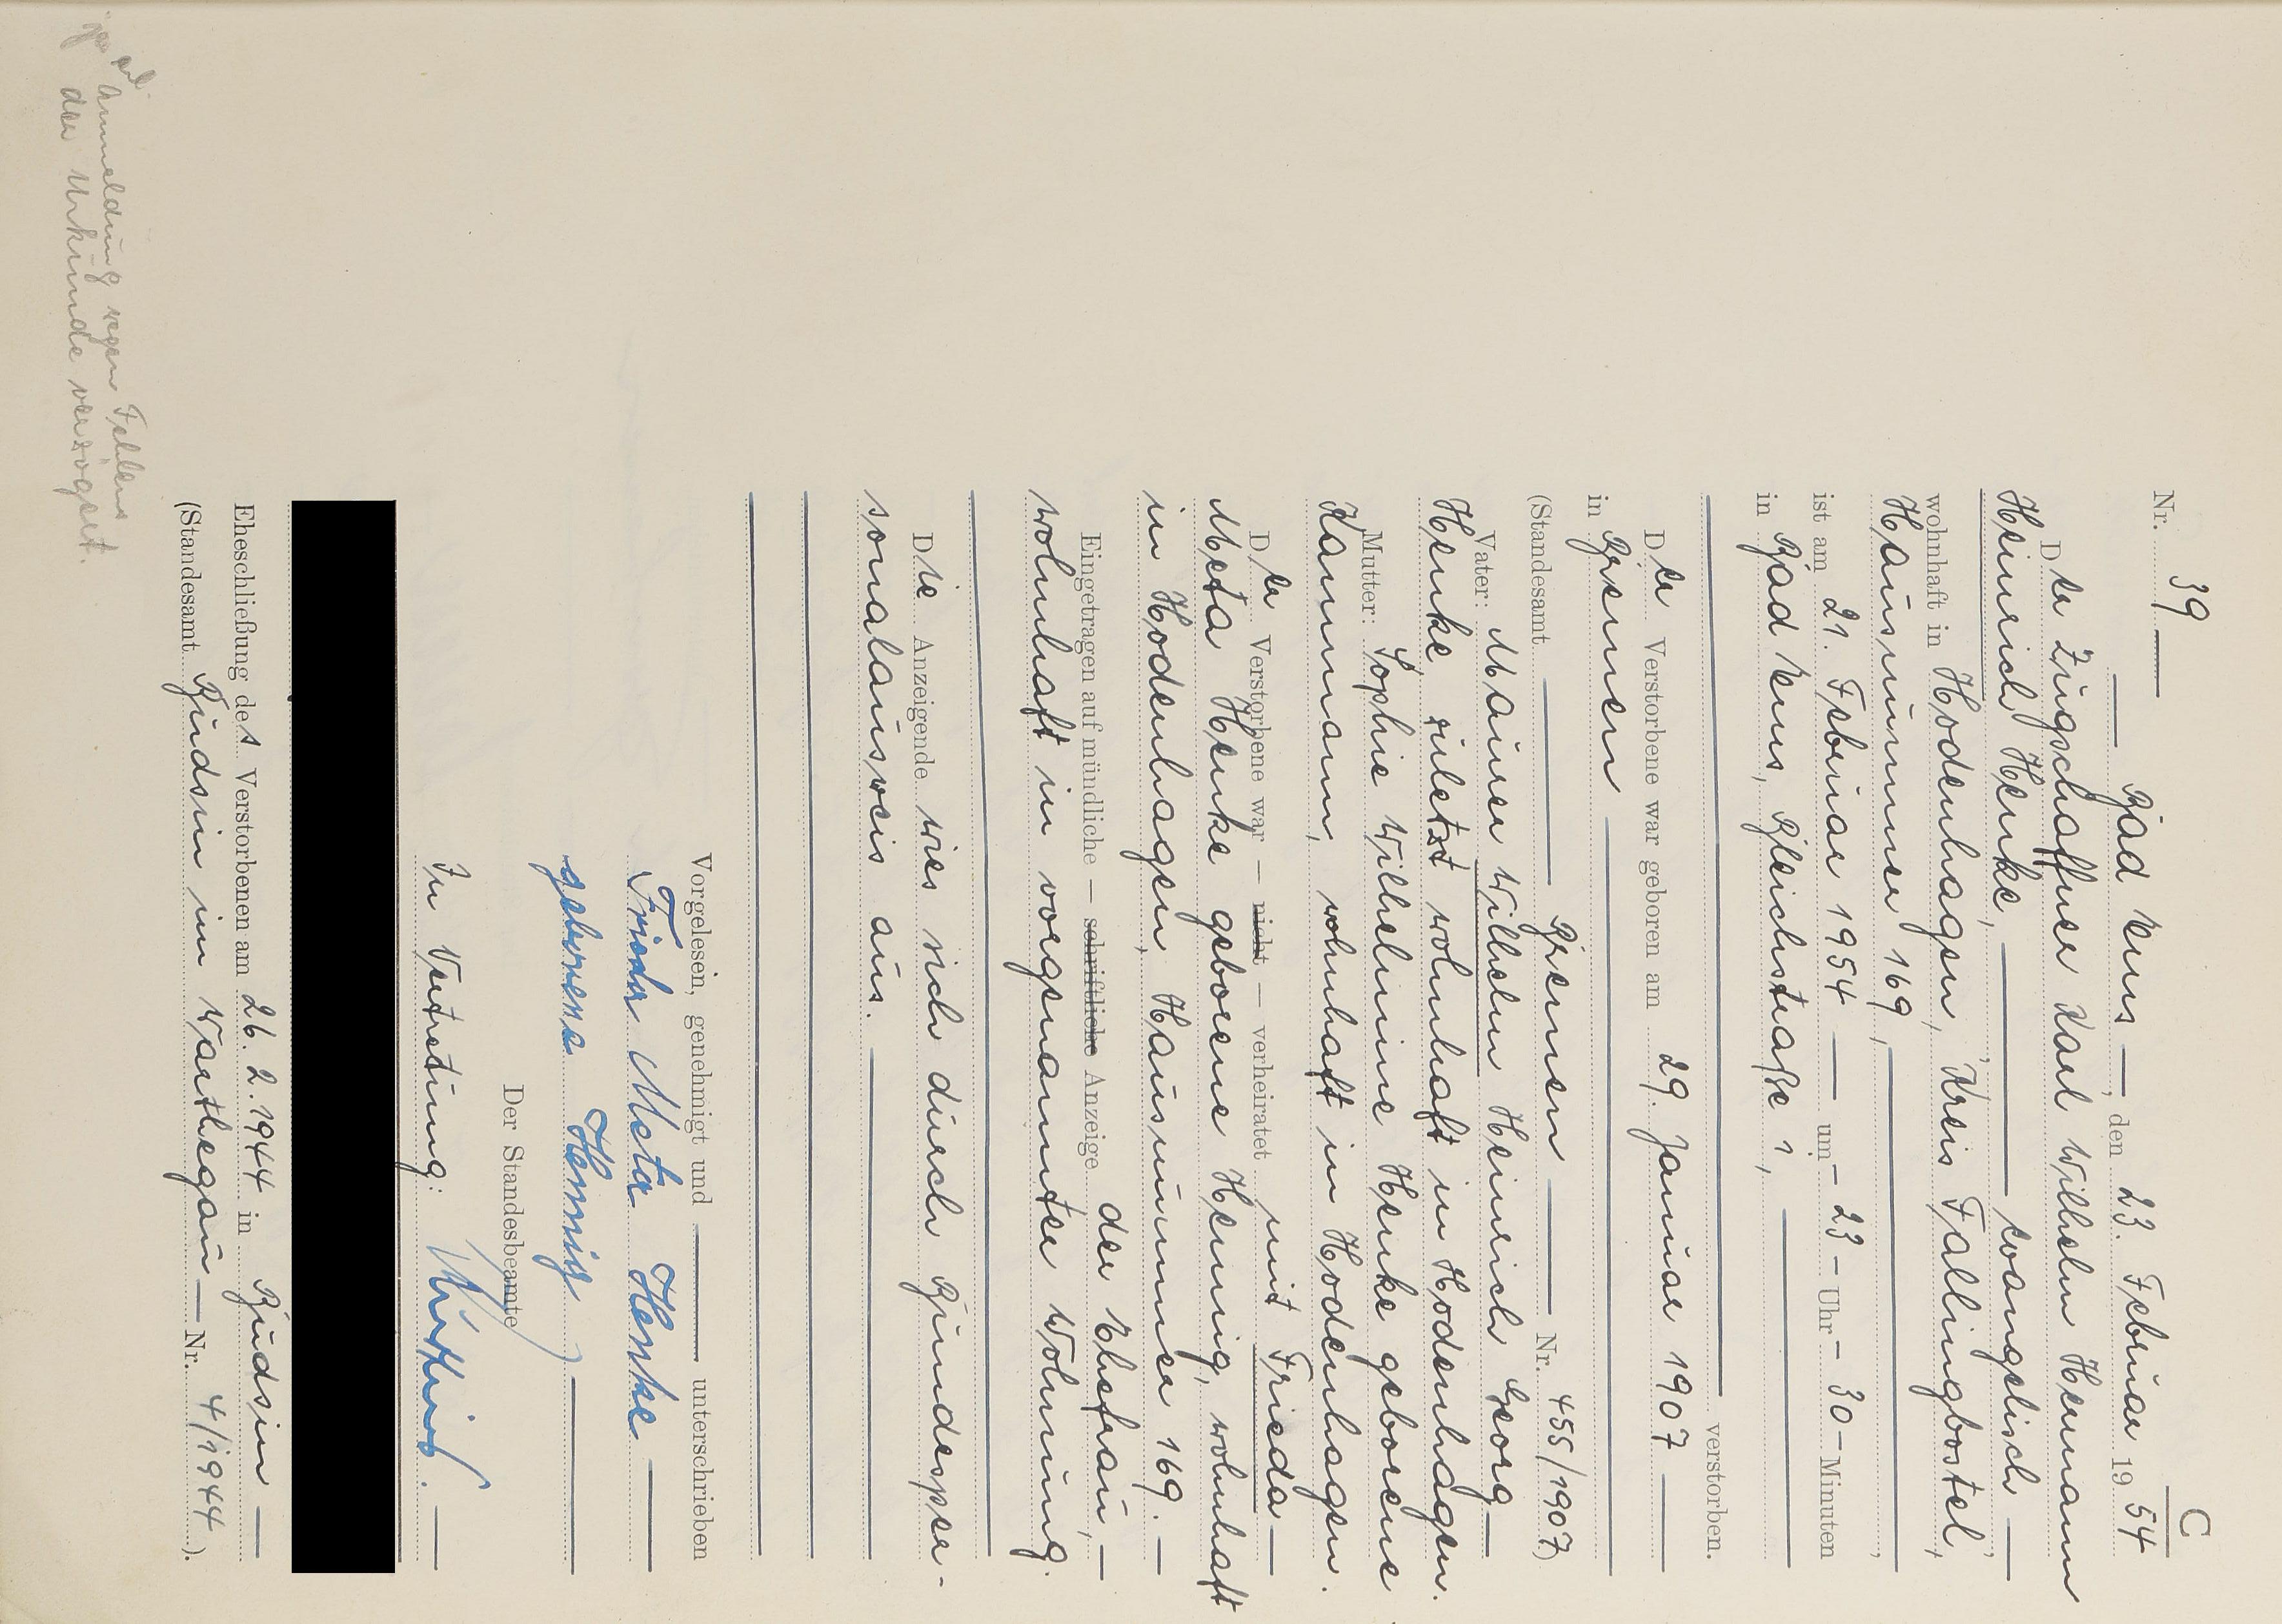 C
Nr. 39
Bad Rems, den 23. Februar 1954
Der Zugschaffner Karl Wilhelm Hermann
Heinrich Henke, evangelisch
wohnhaft in Hodenhagen, Kreis Fallingbostel,
Hausnummer 169,
ist am 21. Februar 1954 um 23 Uhr 30 Minuten
in Bad Rems, Bleichstraße 1,
verstorben.
Der Verstorbene war geboren am 29. Januar 1907
in Bremen
(Standesamt Bremen Nr. 455/1907)
Vater: Maurer Wilhelm Heinrich Georg
Henke zuletzt wohnhaft in Hodenhagen.
Mutter: Sophie Wilhelmine Henke geborene
Kammann, wohnhaft in Hodenhagen.
Der Verstorbene war — nicht — verheiratet mit Frieda
Meta Henke geborene Hennig, wohnhaft
in Hodenhagen, Hausnummer 169.
Eingetragen auf mündliche — schriftliche Anzeige der Ehefrau,
wohnhaft in vorgenannter Wohnung.
Die Anzeigende wies sich durch Bundesper-
sonalausweis aus.
Vorgelesen, genehmigt und unterschrieben
Frieda Meta Henke
geborene Hennig
Der Standesbeamte
In Vertretung:
Eheschließung des Verstorbenen am 26.2.1944 in Budsin
(Standesamt Budsin im Warthegau Nr. 4/1944).
Anmeldung wegen Fehlens
der Urkunde verzögert.